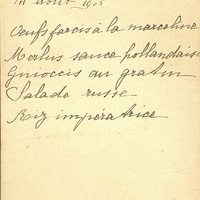 août 1905
Oeufs farcis à la marceline
Merlus sauce hollandaise
Gnioccis au gratin
Salade russe
Riz impératrice